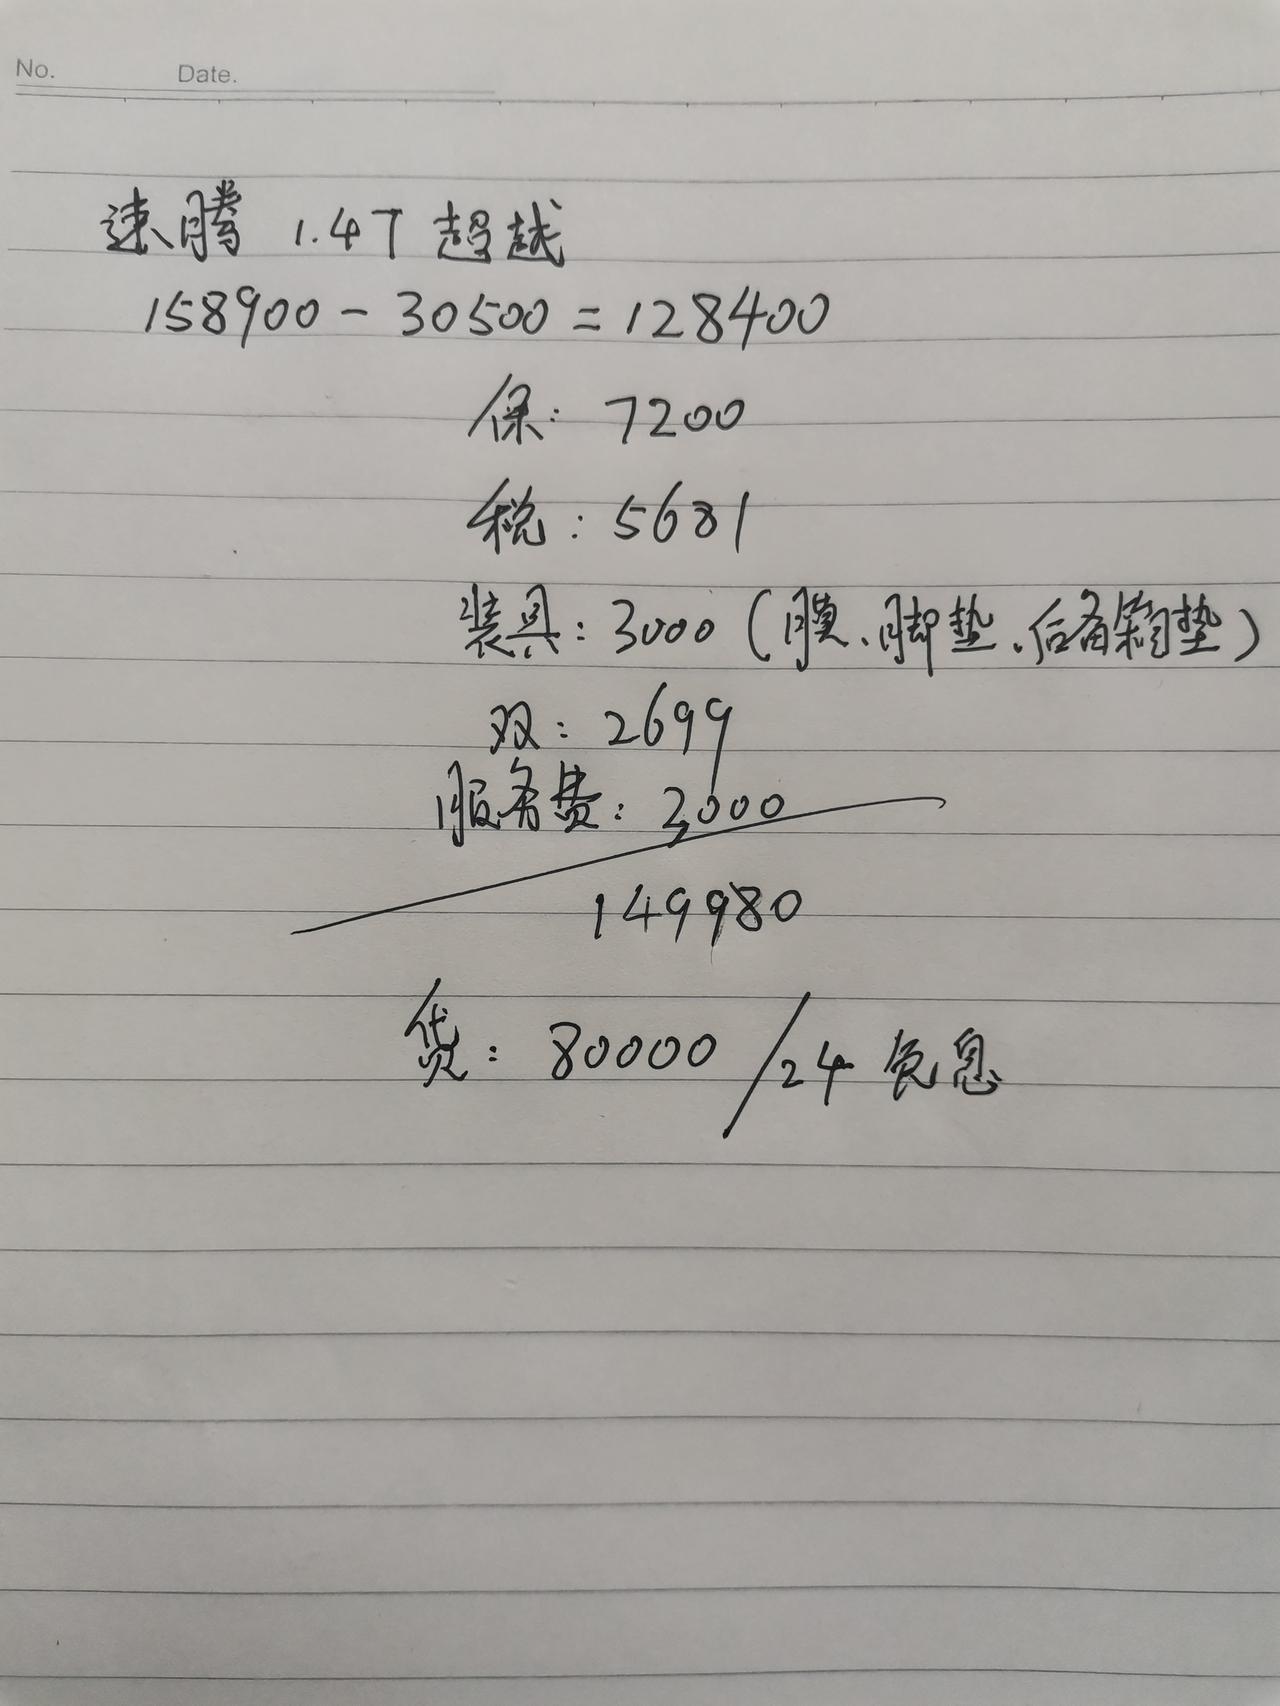 No.
Date.
速腾 1.4T 超越
158900 - 30500 = 128400
保: 7200
税: 5681
装具: 3000 (膜、脚垫、后备箱垫)
双: 2699
服务费: 3000
149980
贷: 80000 / 24 免息